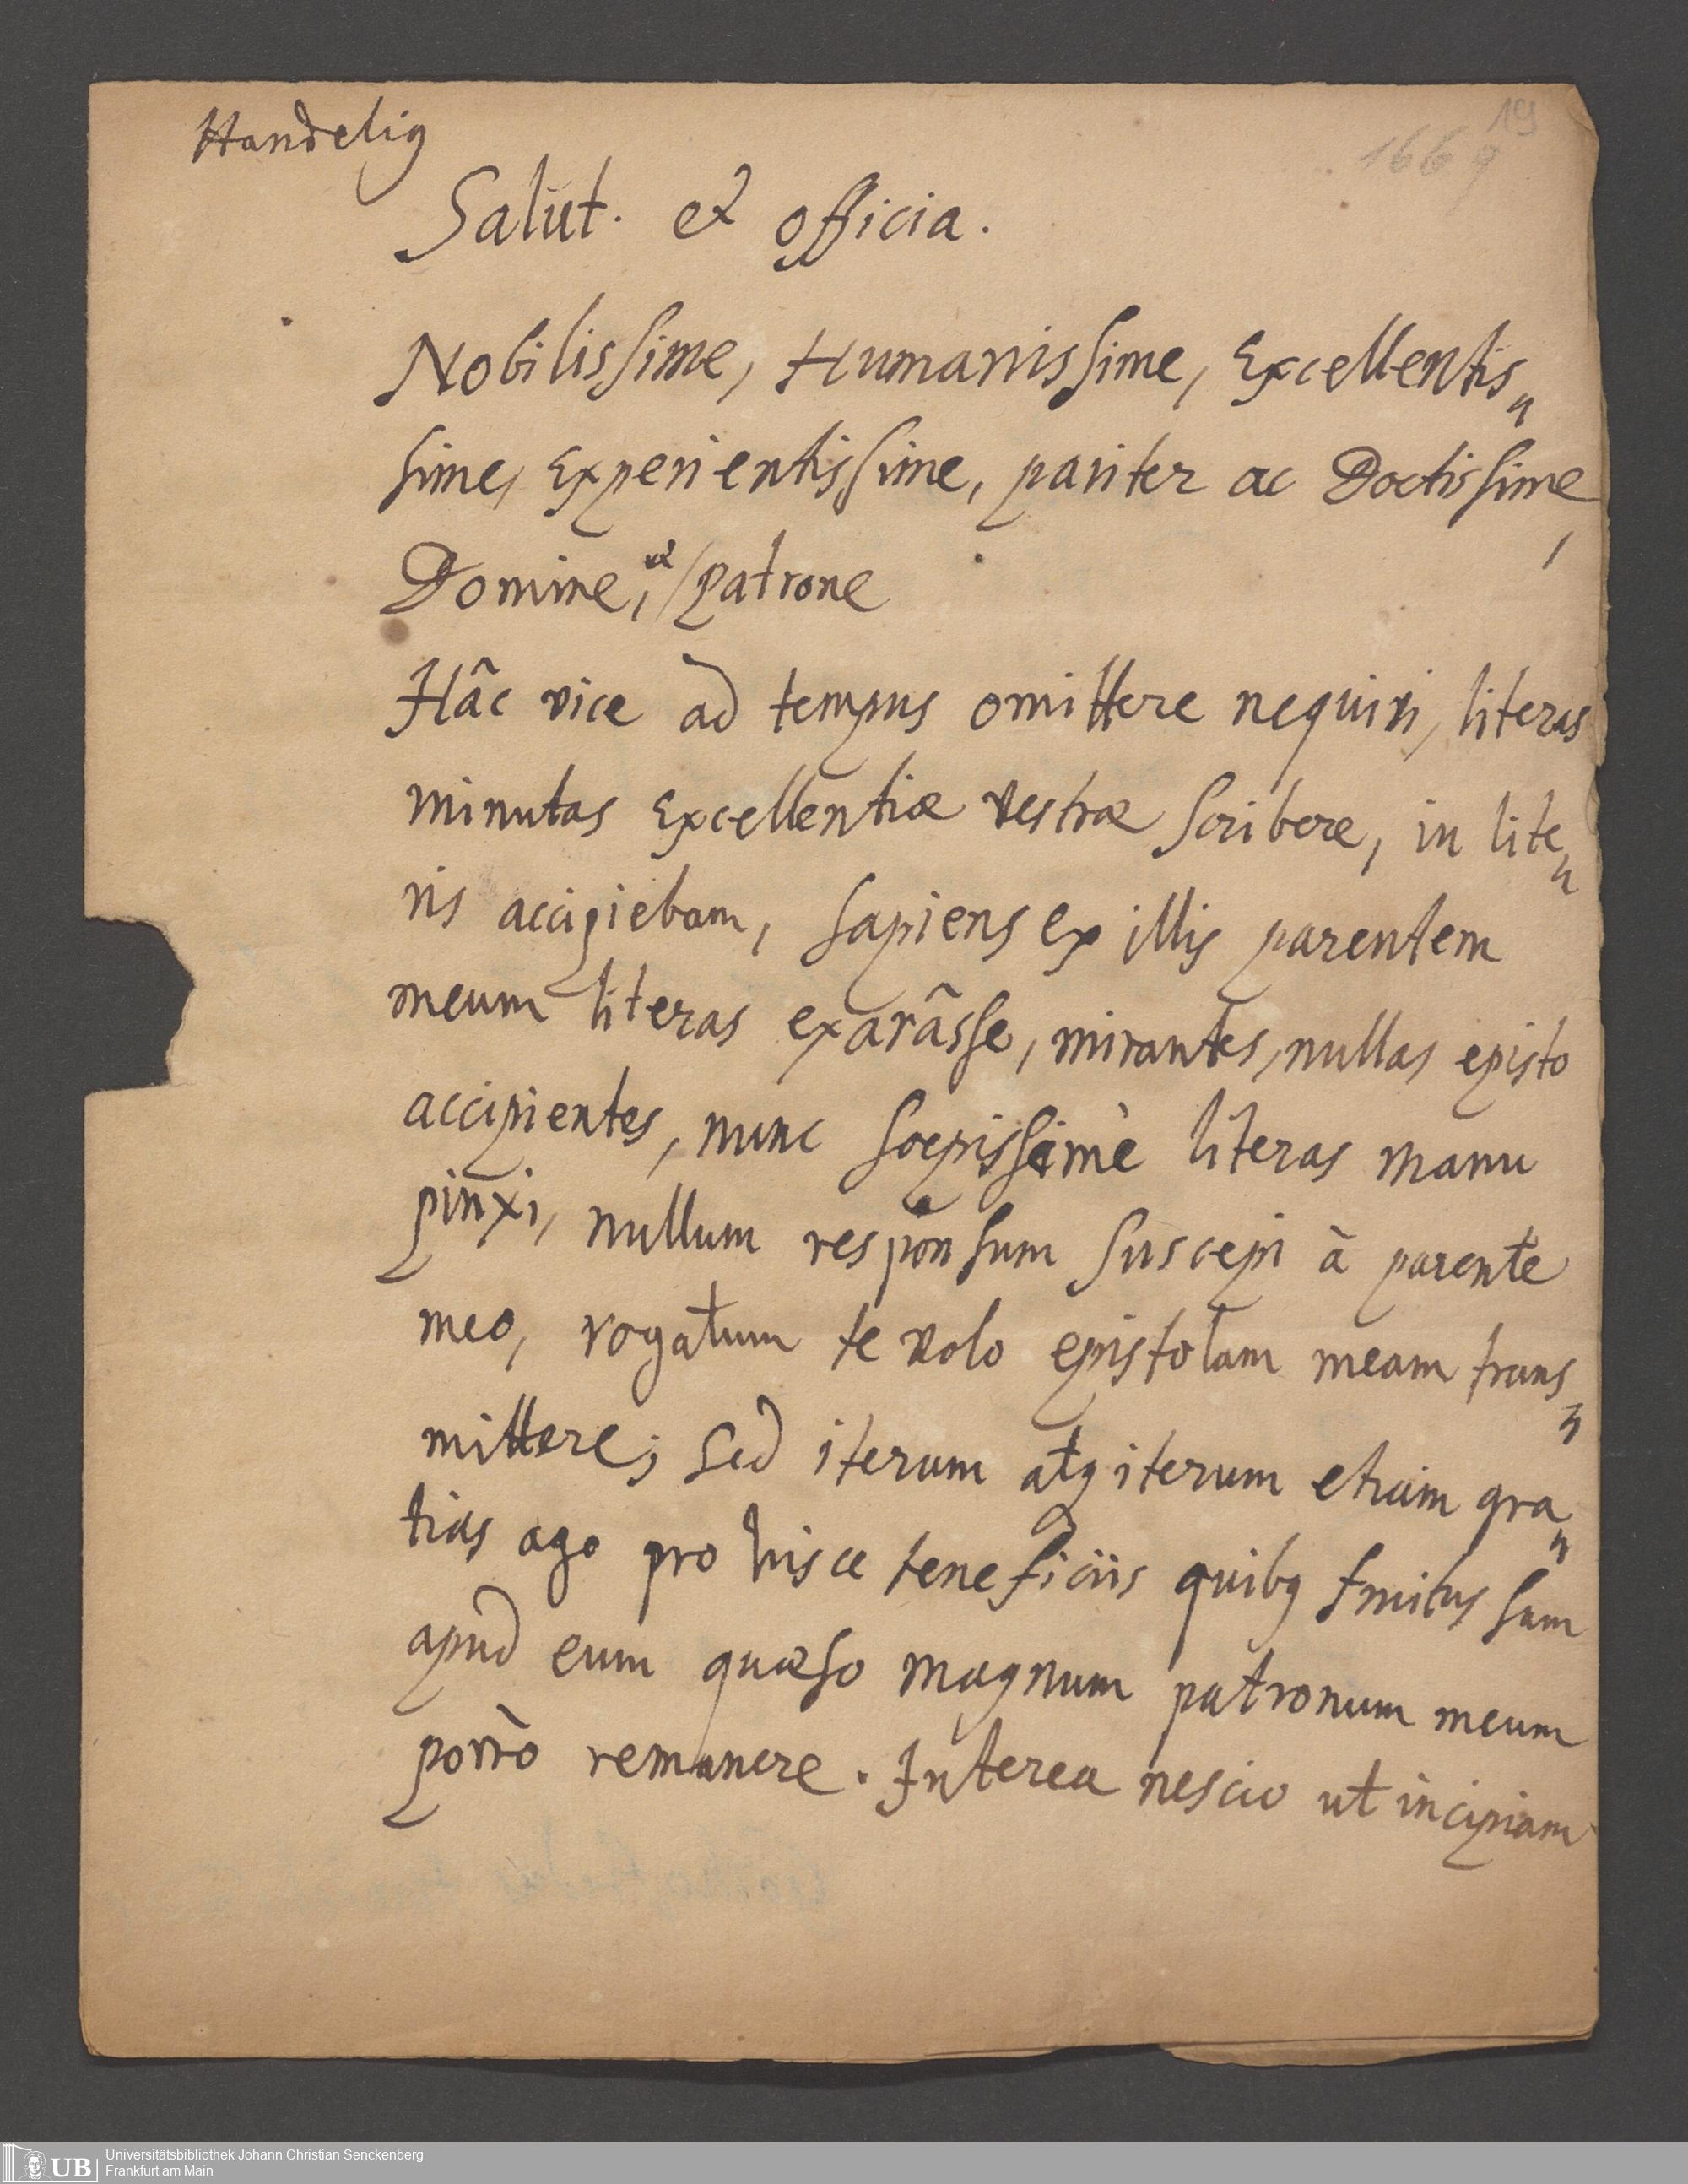 Handelig
19
1669
Salut. et officia.
Nobilissime, Humanissime, Excellentis„
sime, Experientissime, pariter ac Doctissime,
Domine, et patrone
Hâc vice ad tempus omittere nequivi, literas
minutas Excellentiæ vestræ scribere, in lite„
ris accipiebam, sapiens ex illis parentem
meum literas exarâsse, mirantes, nullas episto
accipientes, nunc sœpissimè literas manu
pinxi, nullum responsum suscepi â parente
meo, rogatum te volo epistolam meam trans„
mittere; sed iterum atq iterum etiam gra„
tias ago pro hisce beneficiis quibq fruitus sum
apud eum quæso magnum patronum meum
porrô remanere. Interea nescio ut incipiam
UB
Universitätsbibliothek Johann Christian Senckenberg
Frankfurt am Main